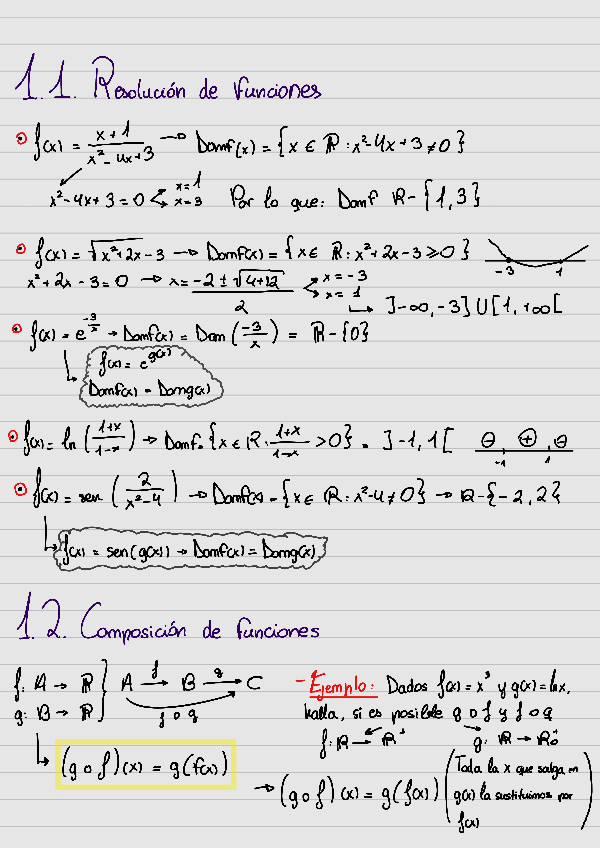 1.1. Resolución de funciones
f(x) = x+1 / x²-4x+3 → Domf(x) = {x ∈ ℝ : x²-4x+3 ≠ 0}
x²-4x+3 = 0 < x=1 x=3 Por lo que: Domf ℝ - {1,3}
f(x) = √x²+2x-3 → Domf(x) = {x ∈ ℝ : x²+2x-3 ≥ 0} -3 1
x²+2x-3=0 → x = -2±√4+12 / 2 x=-3 x=1 ↳ ]-∞,-3] U [1,+∞[
f(x) = e^(-3/x) → Domf(x) = Dom (-3/x) = ℝ - {0}
f(x) = e^g(x)
Domf(x) = Domg(x)
f(x) = ln (1+x / 1-x) → Domf = {x ∈ ℝ : 1+x / 1-x > 0} = ]-1,1[ ⊖ ⊕ ⊖ -1 1
f(x) = sen (2 / x²-4) → Domf(x) = {x ∈ ℝ : x²-4 ≠ 0} → ℝ - {-2,2}
f(x) = sen(g(x)) → Domf(x) = Domg(x)
1.2. Composición de funciones
f: A → ℝ } A →f B →g C
g: B → ℝ } f o g
(g o f)(x) = g(f(x))
- Ejemplo: Dados f(x) = x³ y g(x) = lnx,
halla, si es posible g o f y f o g
f: ℝ → ℝ⁺ g: ℝ → ℝ₀⁺
→ (g o f)(x) = g(f(x)) (Toda la x que salga en
g(x) la sustituimos por
f(x))